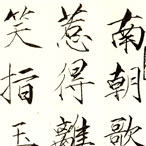 南朝歌
惹得離
笑指玉